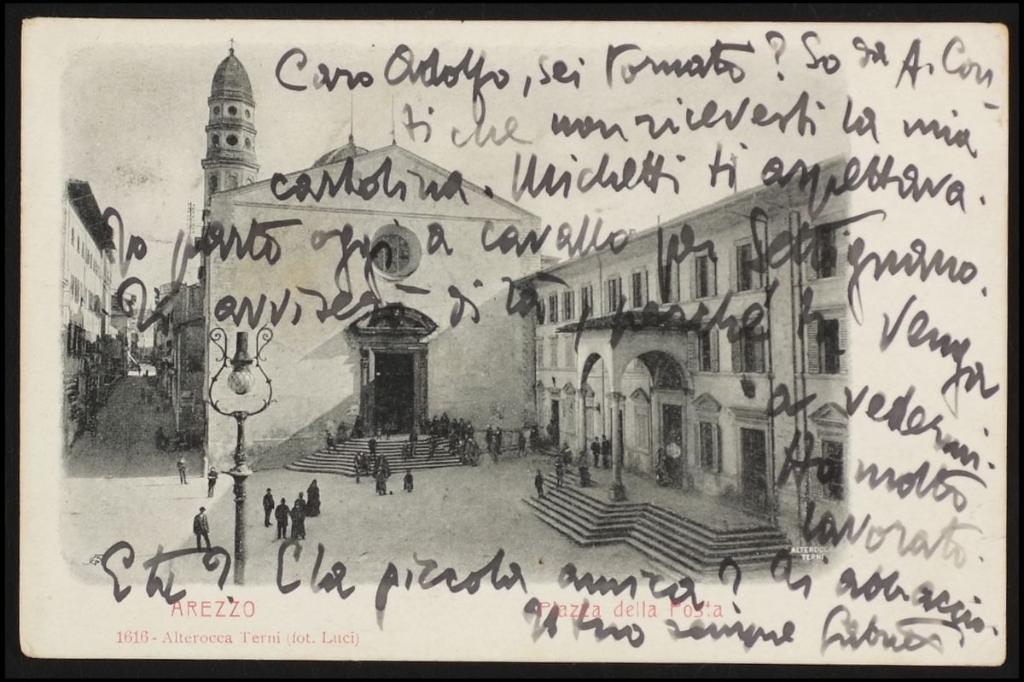 Caro Adolfo, sei tornato? So da A. Con
ti che non ricevesti la mia
cartolina. Michetti ti aspettava.
Io parto oggi a cavallo per Settignano.
Ti avviserò di là, perché tu venga
a vedermi.
Ho molto
lavorato.
E tu? E la piccola amica? Ti abbraccio.
Il tuo sempre Gabriele
ALTEROCCA
TERNI
AREZZO
Piazza della Posta
1616 - Alterocca Terni (fot. Luci)